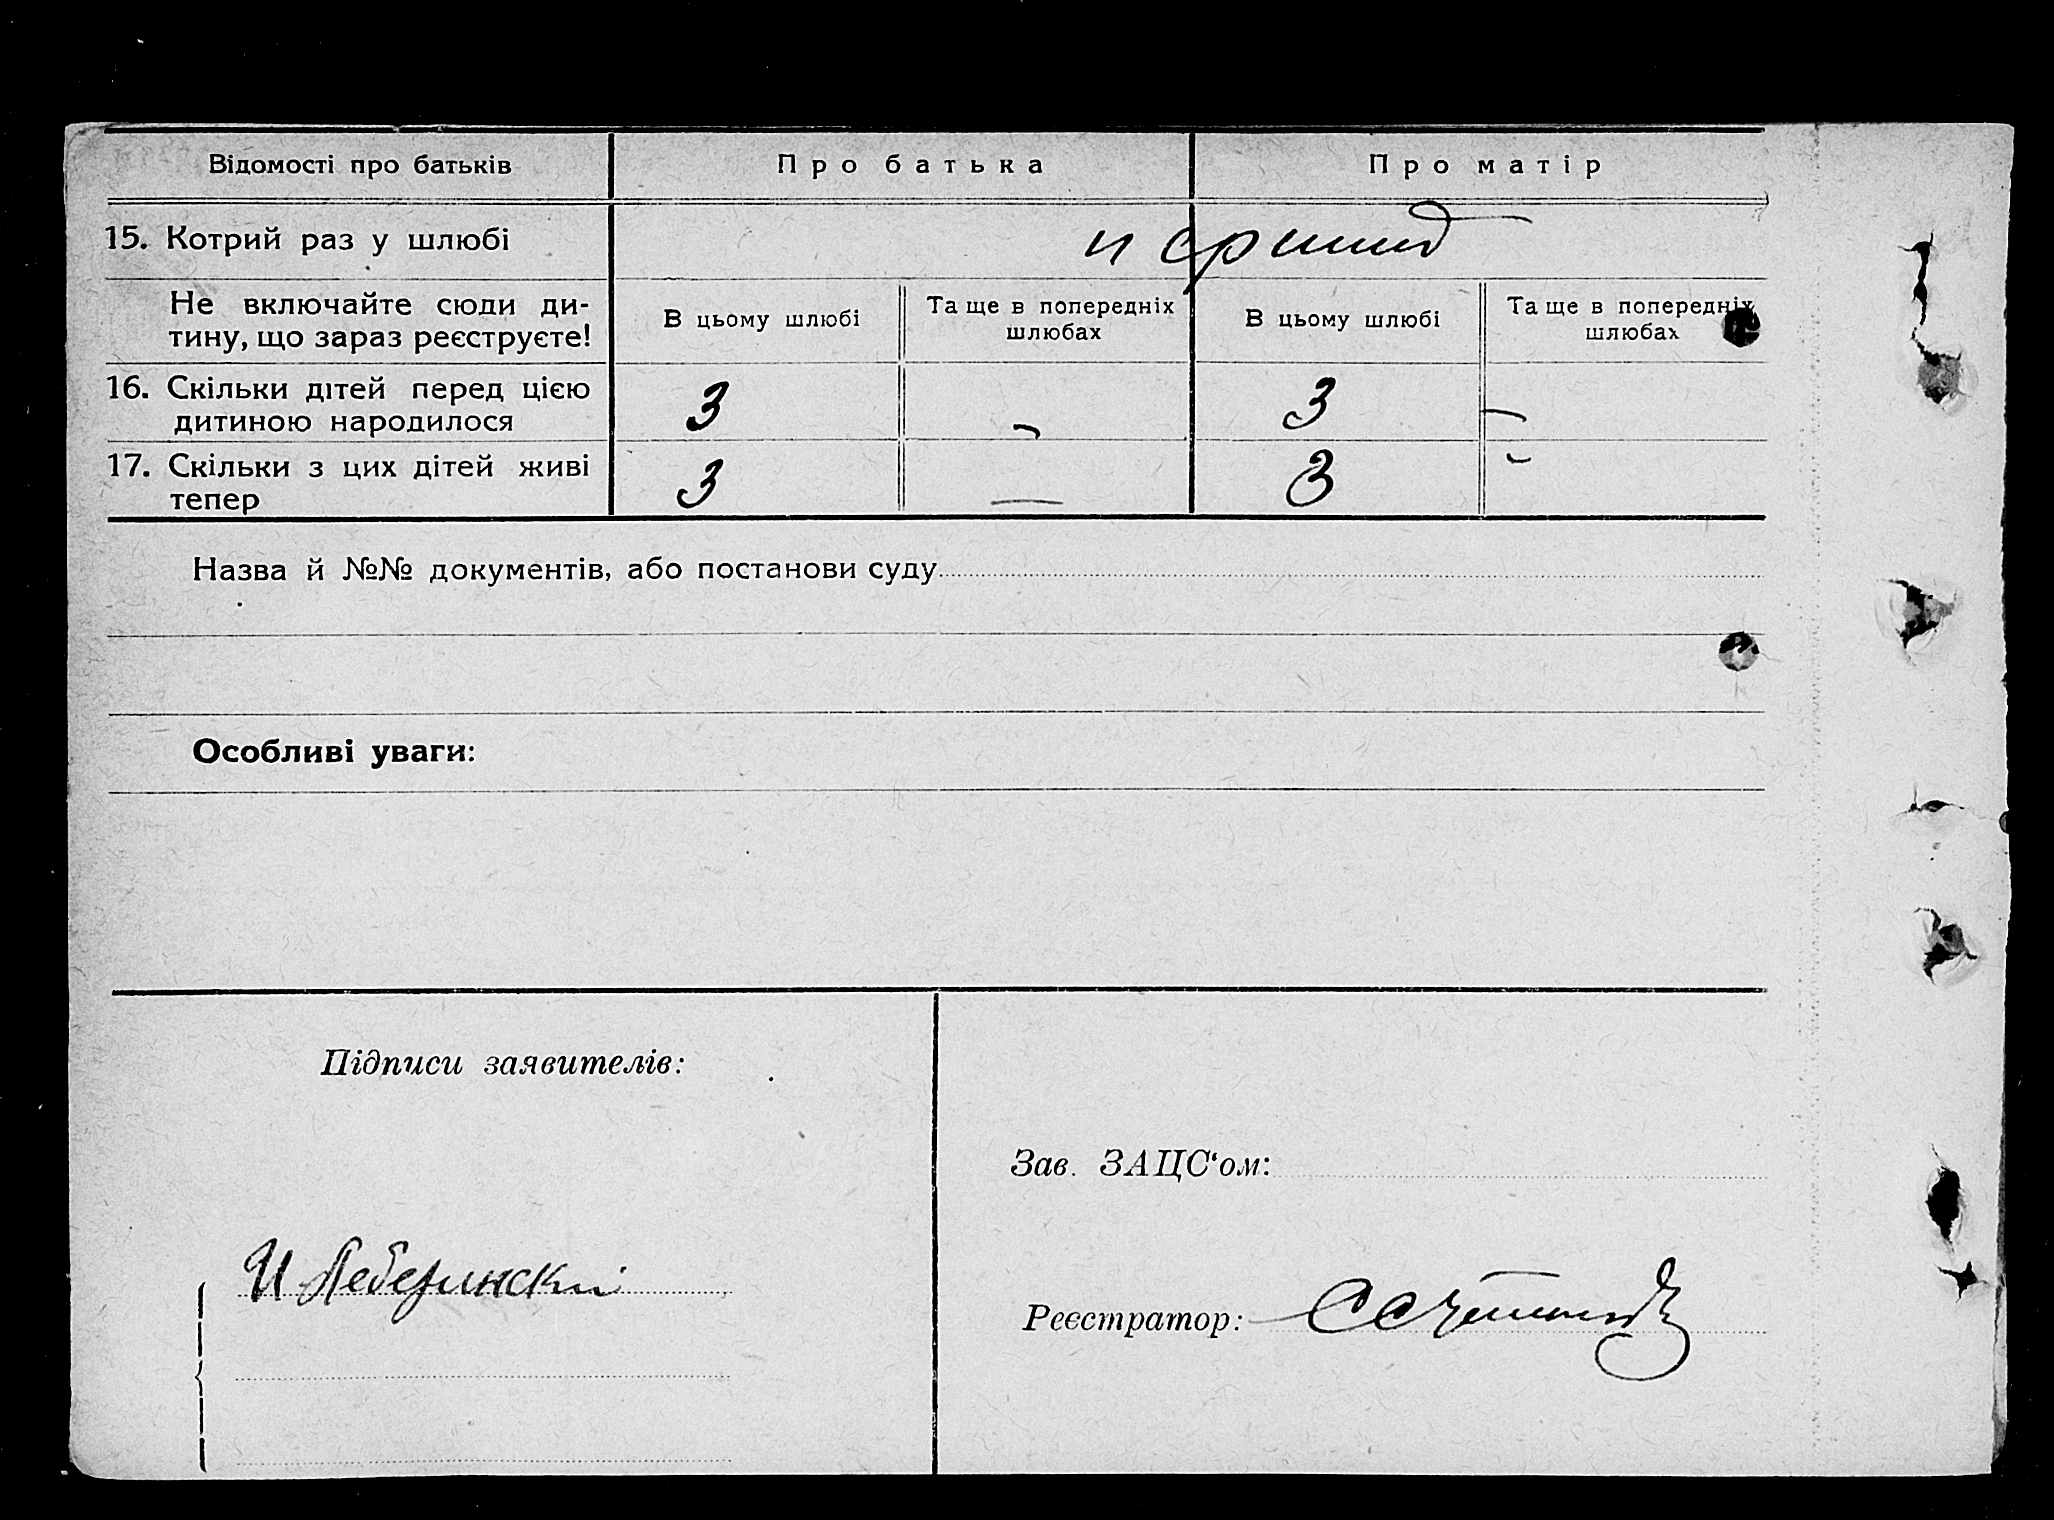 Відомості про батьків Про батька Про матір
15. Котрий раз у шлюбі перший
Не включайте сюди ди-
тину, що зараз реєструєте!
В цьому шлюбі
Та ще в попередніх
шлюбах
В цьому шлюбі
Та ще в попередніх
шлюбах
16. Скільки дітей перед цією
дитиною народилося
3 - 3 -
17. Скільки з цих дітей живі
тепер
3 — 3 -
Назва й №№ документів, або постанови суду
Особливі уваги:
Підписи заявителів:
Зав. ЗАЦС‘ом:
И
Реєстратор: